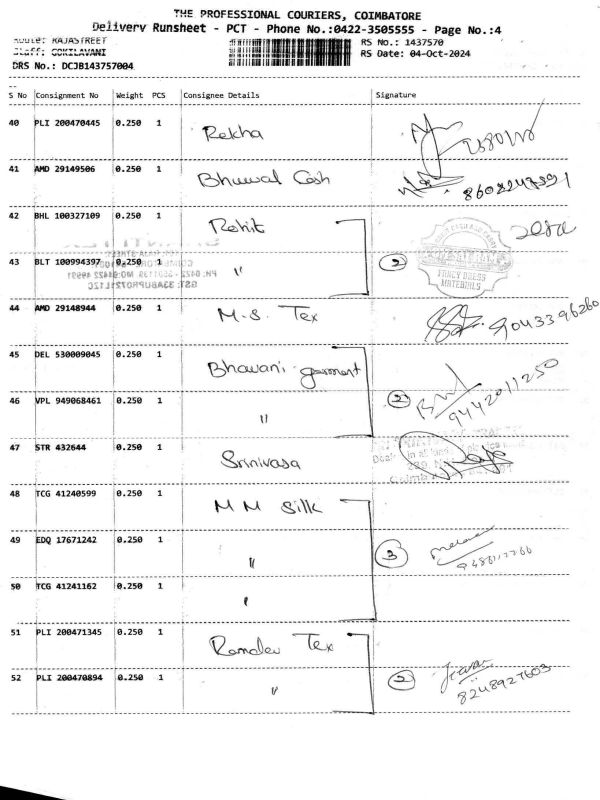 THE PROFESSIONAL COURIERS, COIMBATORE
Delivery Runsheet - PCT - Phone No.:0422-3505555 - Page No.:4
Route: RAJASTREET
RS No.: 1437570
Staff: GOKILAVANI
RS Date: 04-Oct-2024
DRS No.: DCJB143757004
S No Consignment No Weight PCS Consignee Details Signature
40 PLI 200470445 0.250 1 Rekha
41 AMD 29149506 0.250 1 Bhuwal Cash
42 BHL 100327109 0.250 1 Rohit
43 BLT 100994397 0.250 1 " 2
FANCY DRESS
MATERIALS
44 AMD 29148944 0.250 1 M.S. Tex 9043396260
45 DEL 530009045 0.250 1 Bhavani garment
46 VPL 949068461 0.250 1 " 2 9442011250
47 STR 432644 0.250 1 Srinivasa
48 TCG 41240599 0.250 1 M M Silk
49 EDQ 17671242 0.250 1 " 3
50 TCG 41241162 0.250 1 "
51 PLI 200471345 0.250 1 Ramdev Tex
52 PLI 200470894 0.250 1 " 2 8248927603